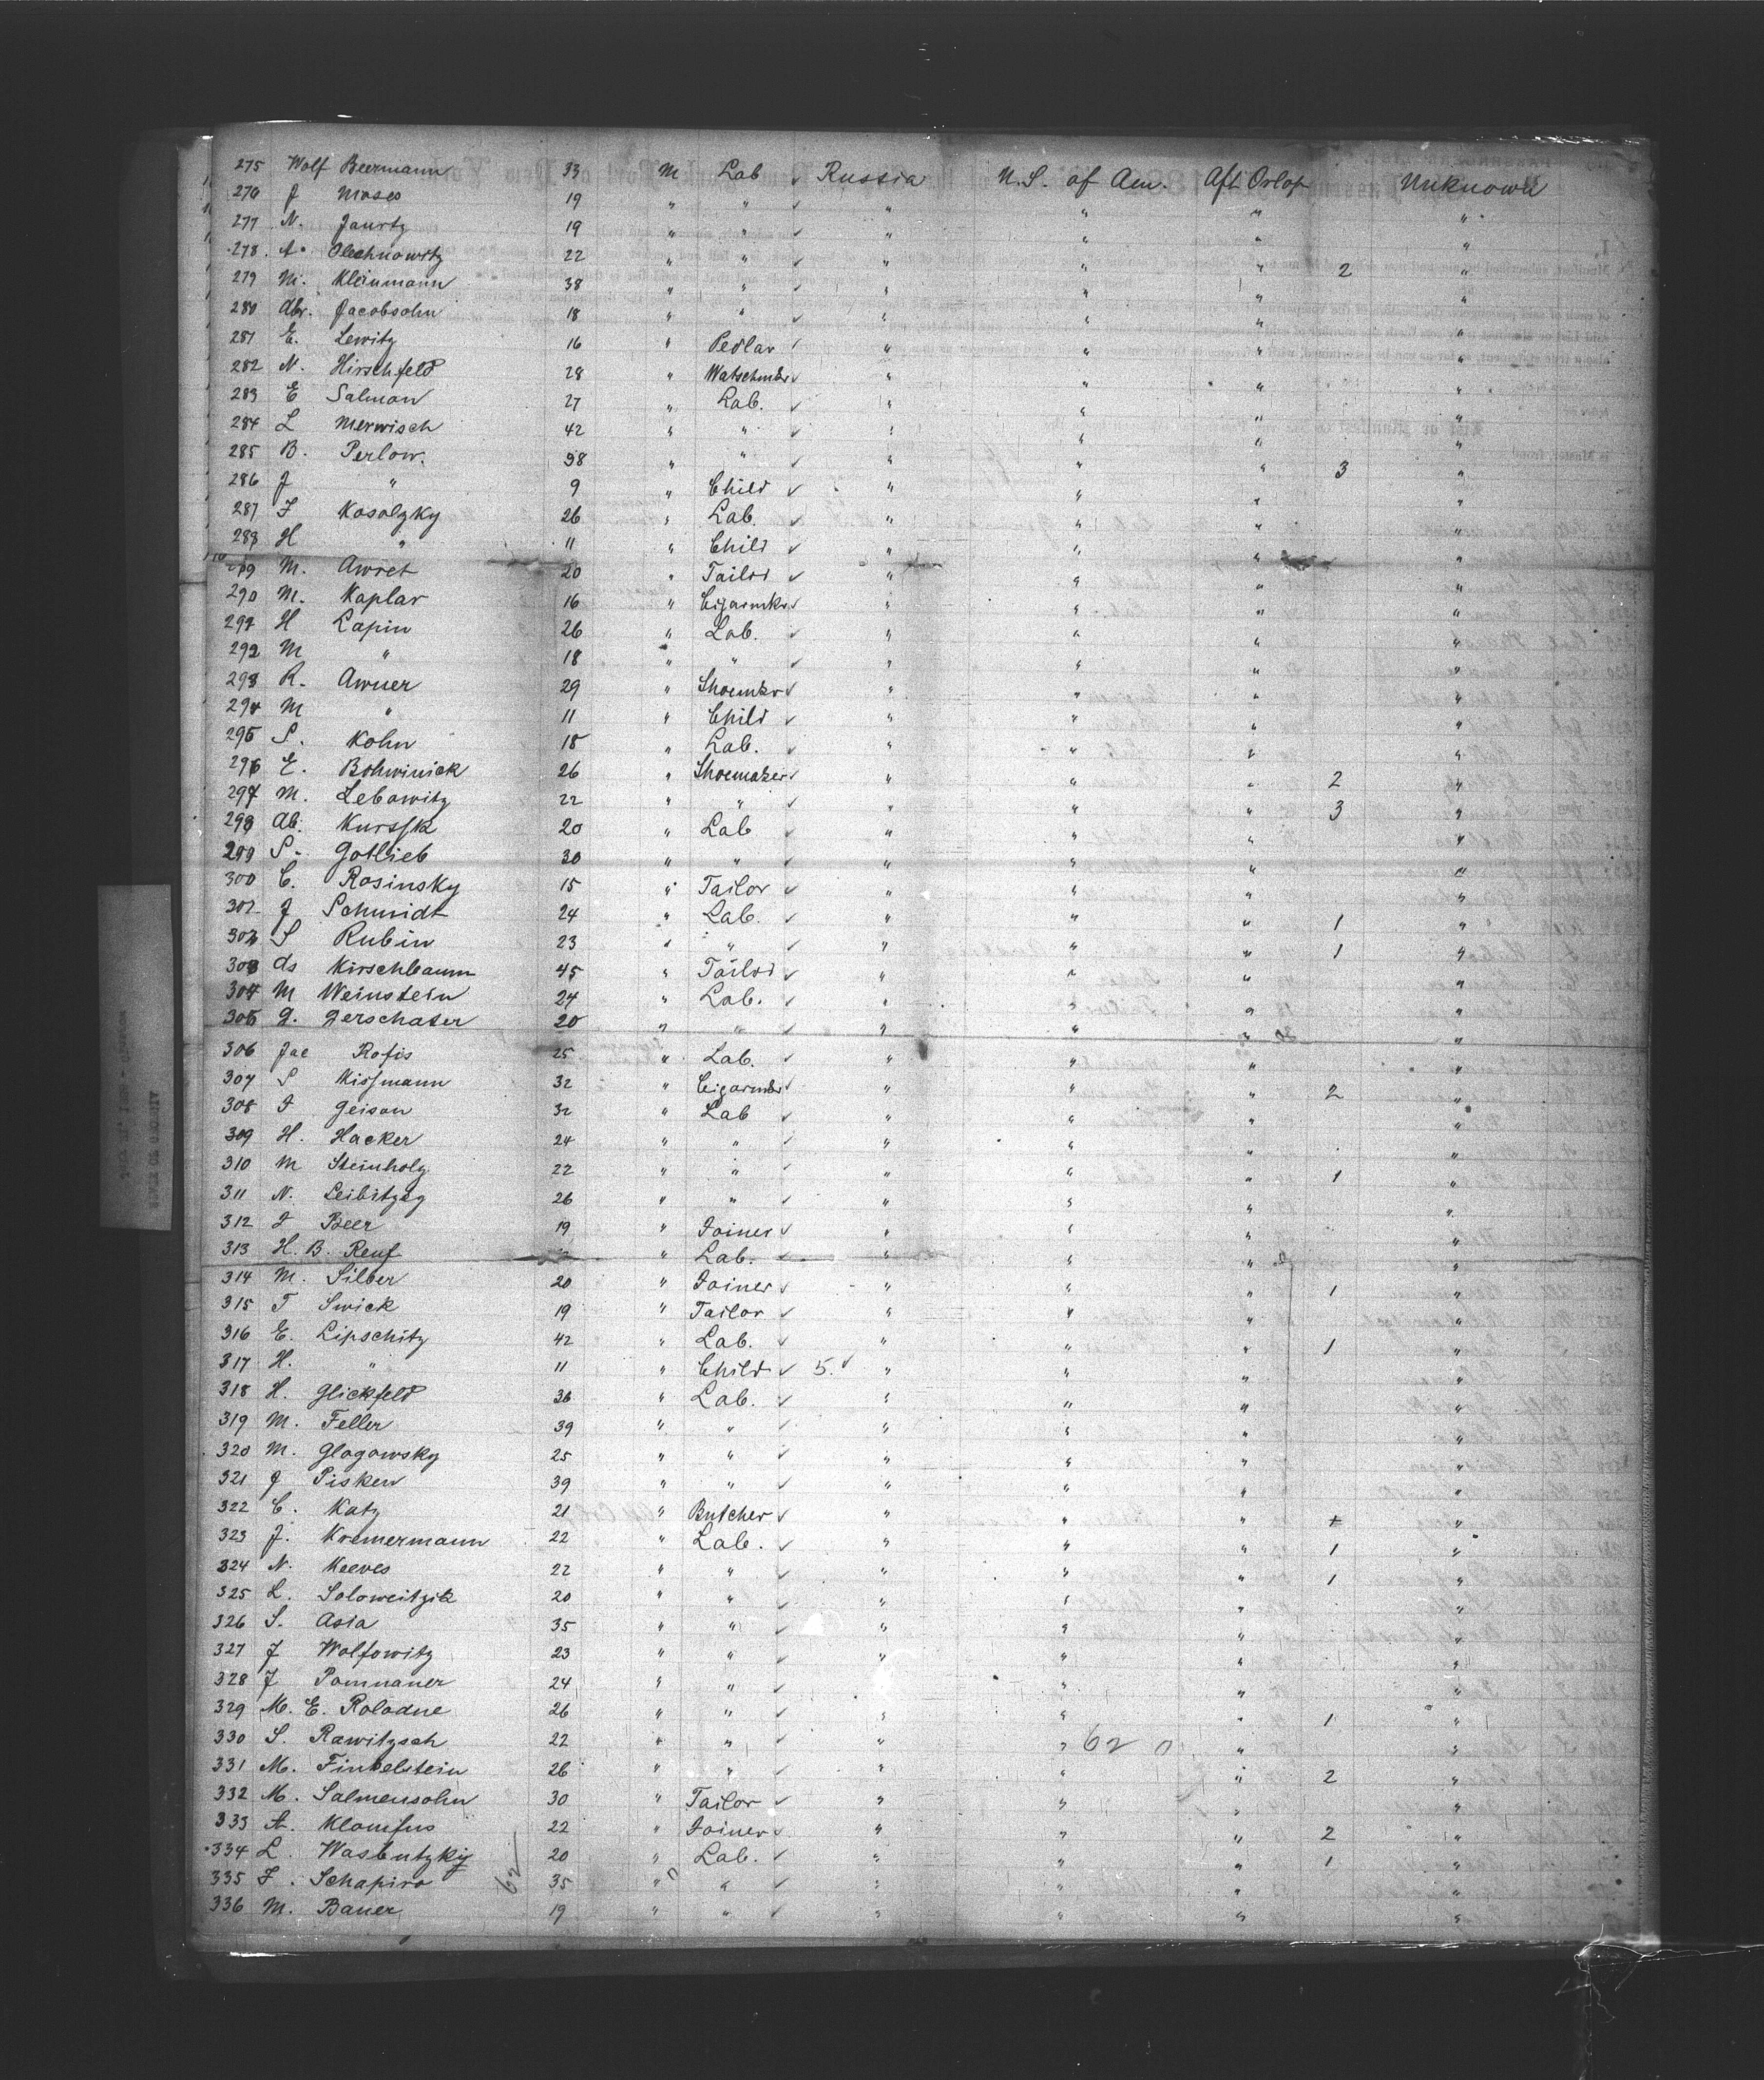 275 Wolf Beermann 33 M Lab ✓ Russia U.S. of Am. Aft Orlop Unknown
276 J Moses 19 " " ✓ " " " "
277 N. Jaurtz 19 " " ✓ " " " "
278 A. Olechnowitz 22 " " ✓ " " " 2 "
279 M. Kleinmann 38 " " ✓ " " " "
280 Abr. Jacobsohn 18 " " ✓ " " " "
281 E. Lewitz 16 " Pedlar ✓ " " " "
282 N. Hirschfeld 28 " Watschmkr ✓ " " " "
283 E Salmon 27 " Lab. ✓ " " " "
284 L Merwisch 42 " " ✓ " " " "
285 B. Perlow. 38 " " ✓ " " " 3 "
286 J " 9 " Child ✓ " " " "
287 F Kosolzky 26 " Lab. ✓ " " " "
288 H " 11 " Child ✓ " " " "
289 M. Awret 20 " Tailor ✓ " " " "
290 M. Kaplar 16 " Cigarmkr ✓ " " " "
291 H Lapin 26 " Lab. ✓ " " " "
292 M " 18 " " ✓ " " " "
293 R. Awner 29 " Shoemkr ✓ " " " "
294 M " 11 " Child ✓ " " " "
295 S. Kohn 18 " Lab. ✓ " " " "
296 E. Bohwinick 26 " Shoemaker ✓ " " " 2 "
297 M. Lebowitz 22 " " ✓ " " " 3 "
298 Ab. Kurssk 20 " Lab ✓ " " " "
299 S. Gotlieb 30 " " ✓ " " " "
300 C. Rosinsky 15 " Tailor ✓ " " " "
301 J Schmidt 24 " Lab. ✓ " " " 1 "
302 S Rubin 23 " " ✓ " " " 1 "
303 As Kirschbaum 45 " Tailor ✓ " " " "
304 M Weinstein 24 " Lab. ✓ " " " "
305 G. Gerschater 20 " " ✓ " " " "
306 Jac Rofis 25 " Lab. ✓ " " " "
307 S Kissmann 32 " Cigarmkr ✓ " " " 2 "
308 J Geison 32 " Lab ✓ " " " "
309 H. Hacker 24 " " ✓ " " " "
310 M Steinholz 22 " " ✓ " " " 1 "
311 N. Leibitzeg 26 " " ✓ " " " "
312 J Beer 19 " Joiner ✓ " " " "
313 H. B. Reuf " Lab. ✓ " " " "
314 M. Silber 20 " Joiner ✓ " " " 1 "
315 T Swick 19 " Tailor ✓ " " " "
316 E. Lipschitz 42 " Lab. ✓ " " " 1 "
317 H. " 11 " Child ✓ 5. ✓ " " " "
318 H. Glickfeld 36 " Lab. ✓ " " " "
319 M. Feller 39 " " ✓ " " " "
320 M. Glogowsky 25 " " ✓ " " " "
321 J Pisken 39 " " ✓ " " " "
322 C. Katz 21 " Butcher ✓ " " " "
323 J. Kremermann 22 " Lab. ✓ " " " 1 "
324 N. Keeves 22 " " ✓ " " " 1 "
325 L. Soloweitzik 20 " " ✓ " " " "
326 S. Asia 35 " " ✓ " " " "
327 J Wolfowitz 23 " " ✓ " " " "
328 J Pomnauer 24 " " ✓ " " " "
329 M. E. Rolodne 26 " " ✓ " " " 1 "
330 S. Rawitzsch 22 " " ✓ " " 62 0 " "
331 M. Finkelstein 26 " " ✓ " " " 2 "
332 M. Salmensohn 30 " Tailor ✓ " " " "
333 A. Klomfus 22 " Joiner ✓ " " " 2 "
334 L. Wasbutzky 20 " Lab. ✓ " " " 1 "
335 F. Schapiro 62 35 " " ✓ " " " "
336 M. Bauer 19 " " ✓ " " " "